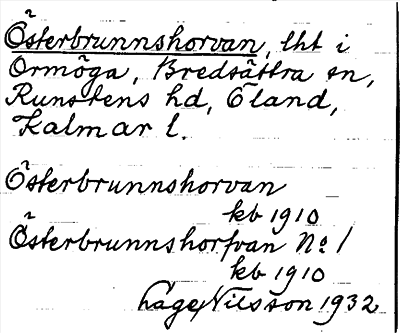 Österbrunnshorvan, lht i
Ormöga, Bredsättra sn,
Runstens hd, Öland,
Kalmar l.
Österbrunnshorvan
kb 1910
Österbrunnshorfvan No 1
kb 1910
Låge Nilsson 1932